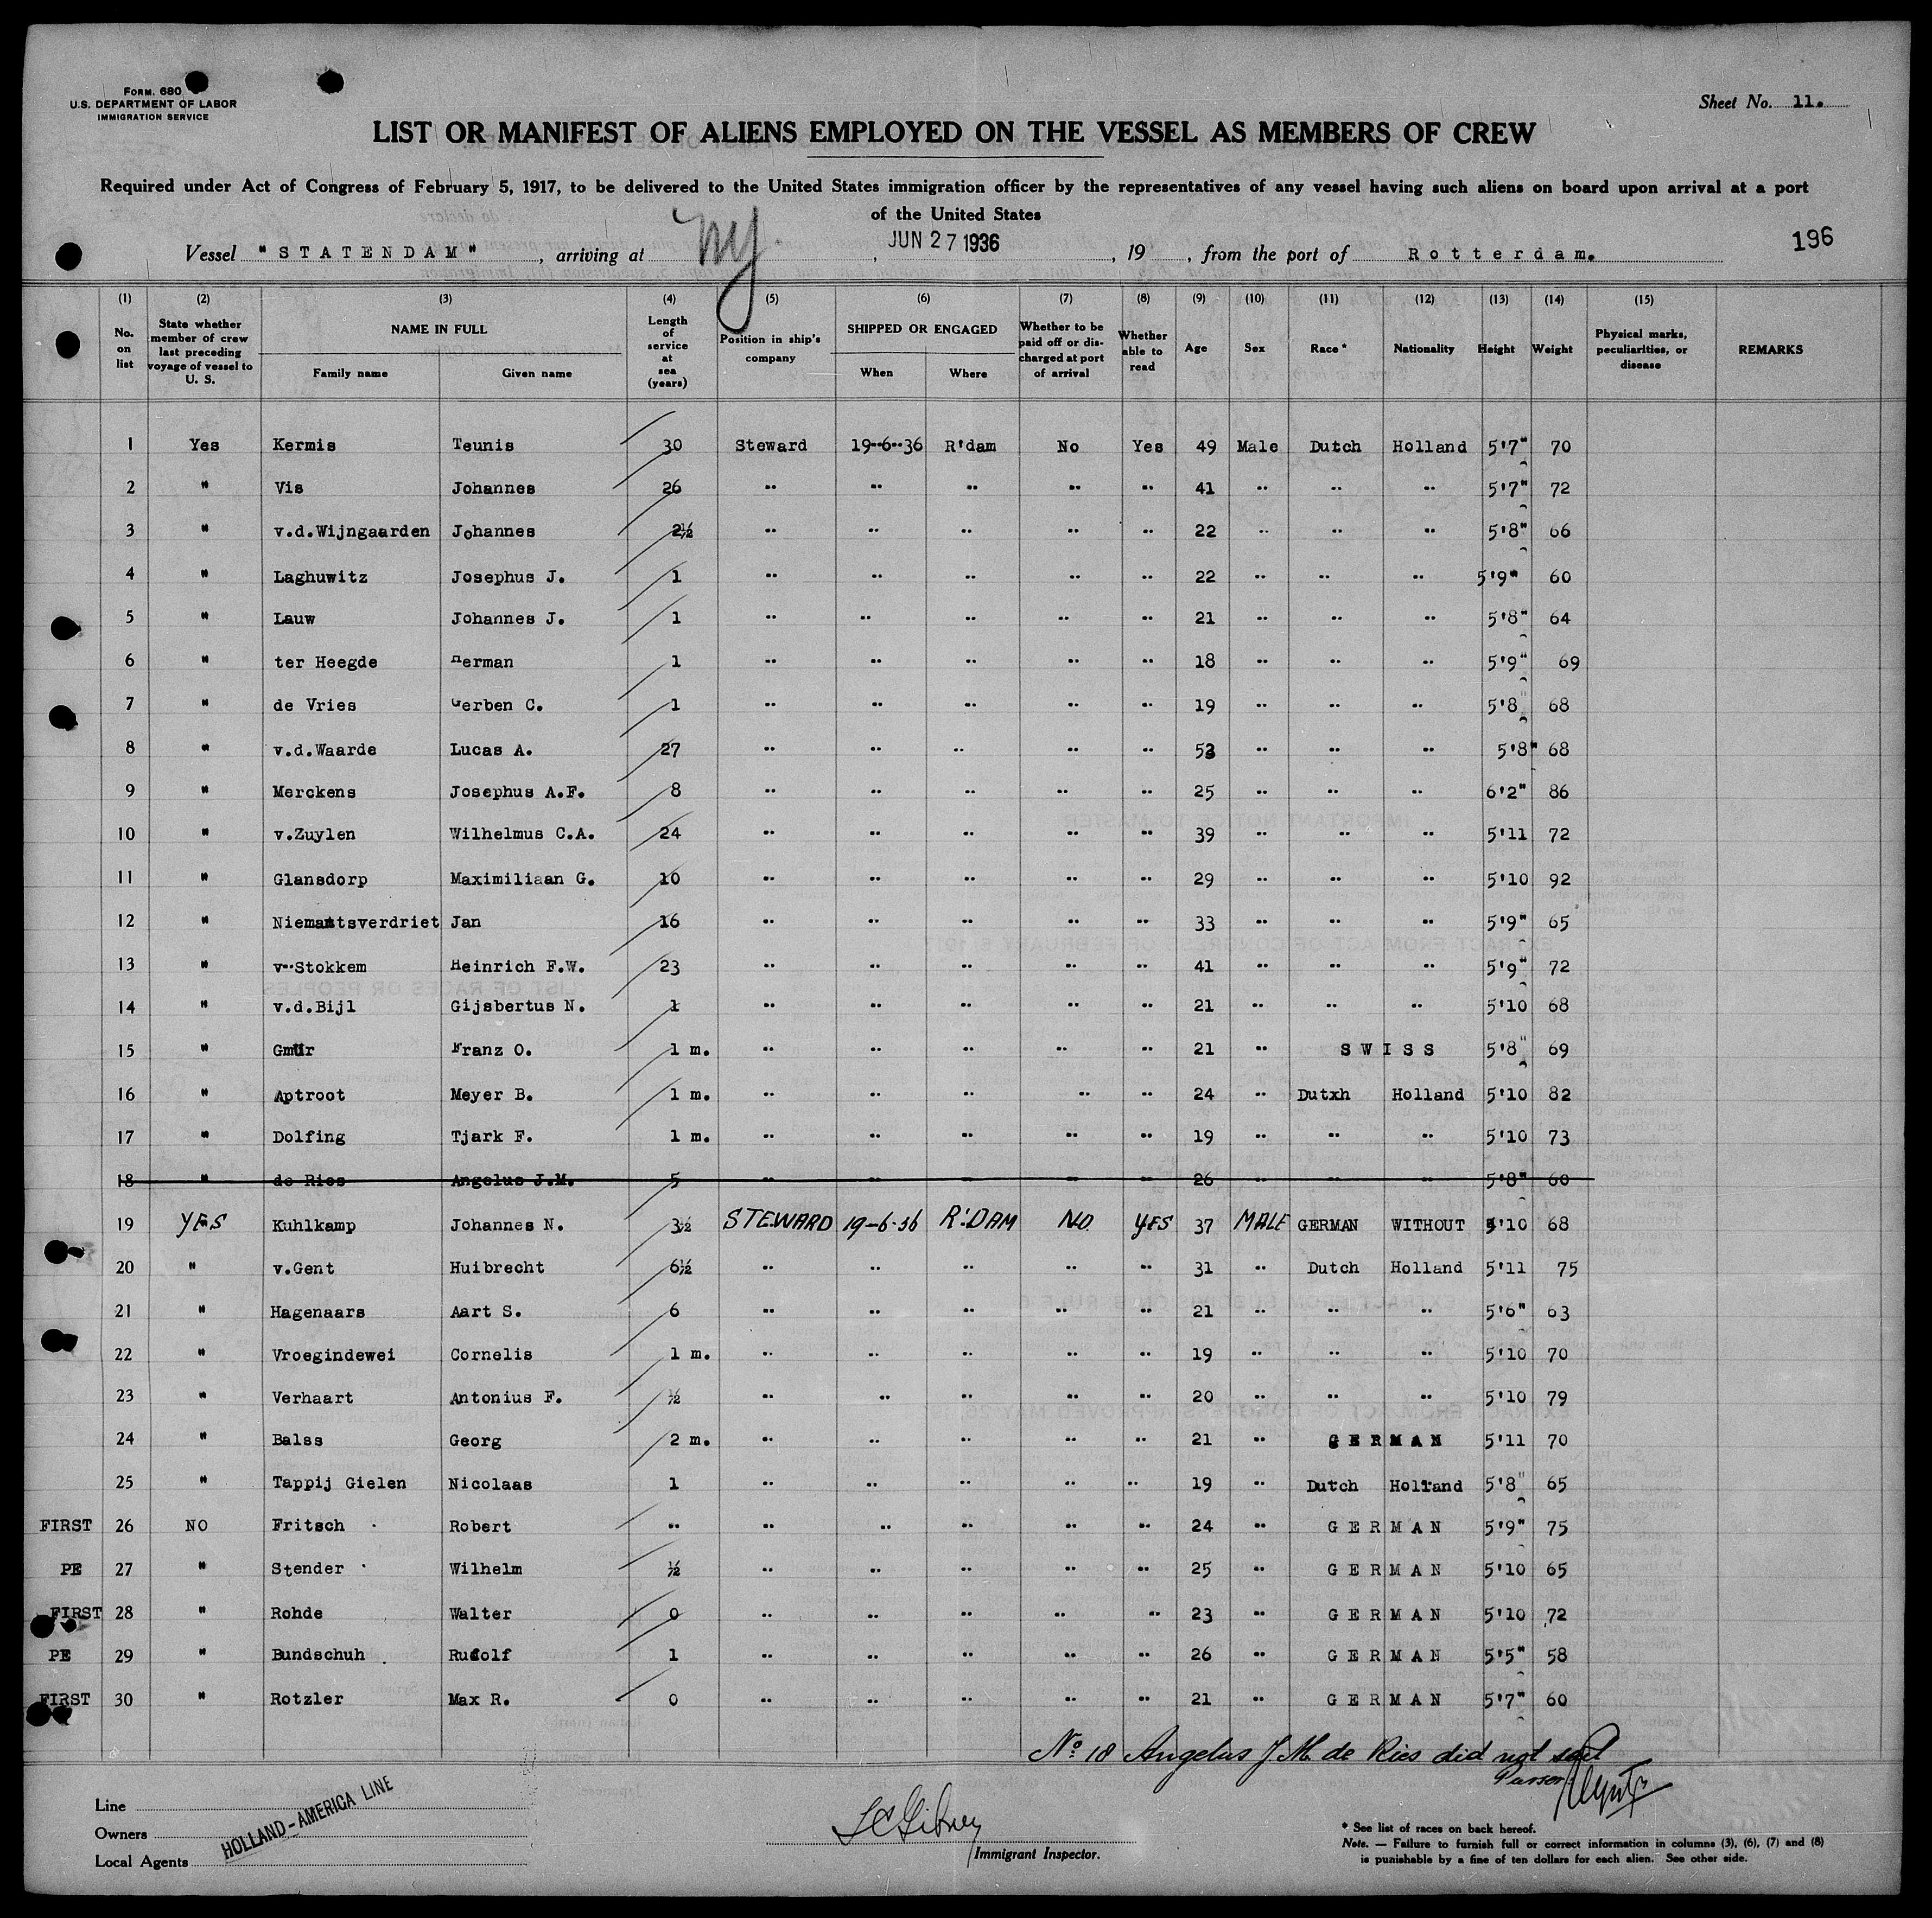 FORM. 680
U.S. DEPARTMENT OF LABOR
IMMIGRATION SERVICE
Sheet No. 11.
LIST OR MANIFEST OF ALIENS EMPLOYED ON THE VESSEL AS MEMBERS OF CREW
Required under Act of Congress of February 5, 1917, to be delivered to the United States immigration officer by the representatives of any vessel having such aliens on board upon arrival at a port
of the United States
Vessel "STATENDAM", arriving at NY, JUN 27 1936, 19 , from the port of Rotterdam.
196
(1) (2) (3) (4) (5) (6) (7) (8) (9) (10) (11) (12) (13) (14) (15)
No. on list | State whether member of crew last preceding voyage of vessel to U. S. | NAME IN FULL Family name Given name | Length of service at sea (years) | Position in ship's company | SHIPPED OR ENGAGED When Where | Whether to be paid off or discharged at port of arrival | Whether able to read | Age | Sex | Race * | Nationality | Height | Weight | Physical marks, peculiarities, or disease | REMARKS
1 Yes Kermis Teunis 30 Steward 19--6--36 R'dam No Yes 49 Male Dutch Holland 5'7" 70
2 " Vis Johannes 26 " " " " " 41 " " " 5'7" 72
3 " v.d.Wijngaarden Johannes 2½ " " " " " 22 " " " 5'8" 66
4 " Laghuwitz Josephus J. 1 " " " " " 22 " " " 5'9" 60
5 " Lauw Johannes J. 1 " " " " " 21 " " " 5'8" 64
6 " ter Heegde Herman 1 " " " " " 18 " " " 5'9" 69
7 " de Vries Gerben C. 1 " " " " " 19 " " " 5'8" 68
8 " v.d.Waarde Lucas A. 27 " " " " " " " " 5'8" 68
9 " Merckens Josephus A.F. 8 " " " " " 25 " " " 6'2" 86
10 " v.Zuylen Wilhelmus C.A. 24 " " " " " 39 " " " 5'11 72
11 " Glansdorp Maximiliaan G. 10 " " " " " 29 " " " 5'10 92
12 " Niemantsverdriet Jan 16 " " " " " 33 " " " 5'9" 65
13 " v--Stokkem Heinrich F.W. 23 " " " " " 41 " " " 5'9" 72
14 " v.d.Bijl Gijsbertus N. 1 " " " " " 21 " " " 5'10 68
15 " Gmür Franz O. 1 m. " " " " " 21 " SWISS 5'8" 69
16 " Aptroot Meyer B. 1 m. " " " " " 24 " Dutxh Holland 5'10 82
17 " Dolfing Tjark F. 1 m. " " " " " 19 " " " 5'10 73
18 " de Ries Angelus J.M. 5 " " " " " 26 " " " 5'8" 60
19 YES Kuhlkamp Johannes N. 3½ STEWARD 19-6-36 R'DAM NO. YES 37 MALE GERMAN WITHOUT 5'10 68
20 " v.Gent Huibrecht 6½ " " " " " 31 " Dutch Holland 5'11 75
21 " Hagenaars Aart S. 6 " " " " " 21 " " " 5'6" 63
22 " Vroegindewei Cornelis 1 m. " " " " " 19 " " " 5'10 70
23 " Verhaart Antonius F. ½ " " " " " 20 " " " 5'10 79
24 " Balss Georg 2 m. " " " " " 21 " GERMAN 5'11 70
25 " Tappij Gielen Nicolaas 1 " " " " " 19 " Dutch Holland 5'8" 65
FIRST 26 NO Fritsch Robert " " " " " " 24 " GERMAN 5'9" 75
PE 27 " Stender Wilhelm ½ " " " " " 25 " GERMAN 5'10 65
FIRST 28 " Rohde Walter 0 " " " " " 23 " GERMAN 5'10 72
PE 29 " Bundschuh Rudolf 1 " " " " " 26 " GERMAN 5'5" 58
FIRST 30 " Rotzler Max R. 0 " " " " " 21 " GERMAN 5'7" 60
No 18 Angelus J M de Ries did not sail
Purser
Line
Owners
Local Agents
HOLLAND-AMERICA LINE
Immigrant Inspector.
* See list of races on back hereof.
Note. — Failure to furnish full or correct information in columns (3), (6), (7) and (8)
is punishable by a fine of ten dollars for each alien. See other side.